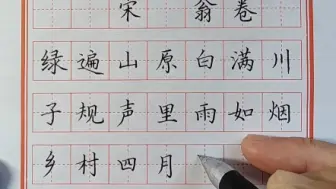 宋 翁卷
绿遍山原白满川
子规声里雨如烟
乡村四月